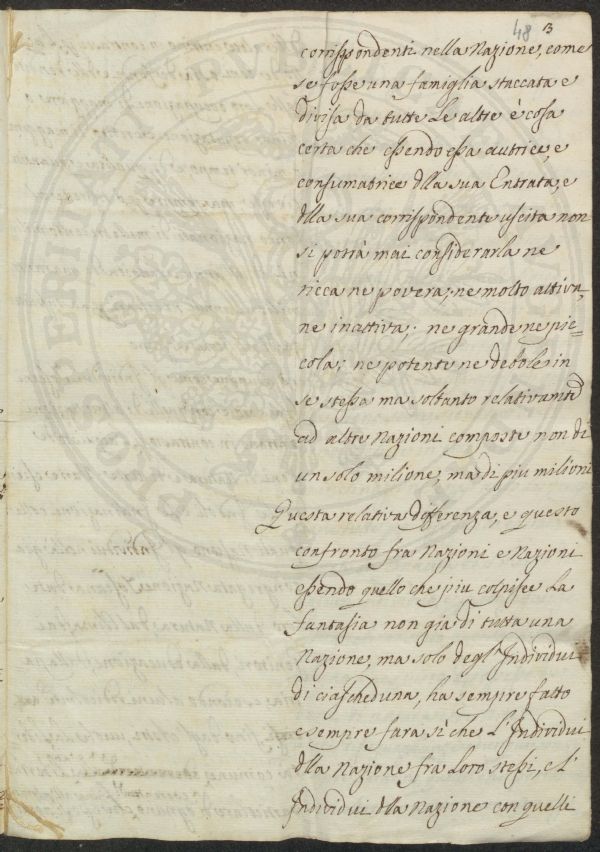 48 3
corrispondenti nella Nazione, come
se fosse una famiglia staccata e
divisa da tutte Le altre è cosa
certa che essendo essa autrice, e
consumatrice dlla sua Entrata, e
dlla sua corrispondente uscita non
si potrà mai considerarla ne
ricca ne povera; ne molto attiva,
ne inattiva; ne grande ne pic=
cola; ne potente ne debole in
se stessa ma soltanto relativamte
ad altre Nazioni composte non di
un solo milione, ma di piu milioni
Questa relativa differenza, e questo
confronto fra Nazioni e Nazioni
essendo quello che piu colpisce La
fantasia non gia di tutta una
Nazione, ma solo degl'Individui
di ciascheduna, ha sempre fatto
e sempre fara sì che L'Individui
dlla Nazione fra Loro stessi, e l'
Individui dlla Nazione con quelli